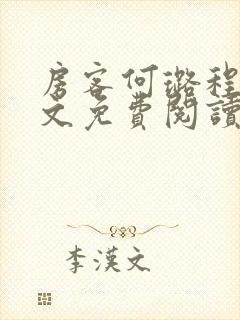 房客何璐程
文免費閱讀
李漢文